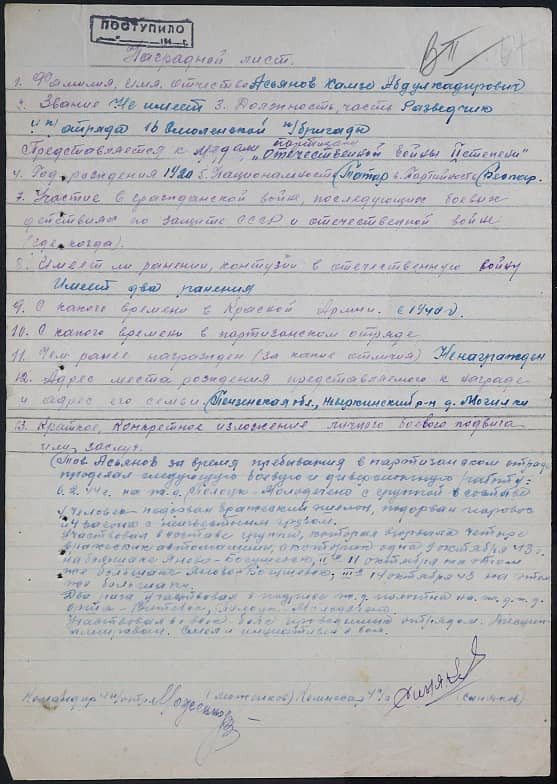 ПОСТУПИЛО
194 г.
Наградной лист.
1. Фамилия, имя, отчество Асьянов Камзо Абдулкадирович
2. Звание Не имеет 3. Должность, часть Разведчик
4го отряда 16 Смоленской п/бригады
Представляется к медали „Партизану Отечественной войны II степени"
4. Год рождения 1920 5. Национальность Татар 6. Партийность Беспар.
7. Участие в гражданской войне, последующих боевых
действиях по защите СССР и отечественной войне
(где, когда).
8. Имеет ли ранении, контузии в отечественную войну
Имеет два ранения
9. С какого времени в Красной Армии. с 1940 г.
10. С какого времени в партизанском отряде
11. Чем ранее награжден (за какие отличия) Ненагражден
12. Адрес места рождения представляемого к награде
и адрес его семьи Пензенская обл., р-н д. Могилки
13. Краткое, конкретное изложение личного боевого подвига
или заслуг.
Тов Асьянов за время пребывания в партизанском отряде
проделал следующую боевую и диверсионную работу:
6.2.44г. на ж.д. Полоцк-Молодечно с группой в составе
4 человек подорван вражеский эшелон, подорван паровоз
и 4 вагона с неизвестным грузом.
Участвовал в составе группы, которая взорвала четыре
вражеских автомашин, из которых одна 9 октября 43 г.
на большаке Яново-Богушевое, II я 11 октября на этом
же большаке Яново-Богушевое, III я 14 октября 43 на этом
же большаке.
Два раза участвовал в подрыве ж.д. полотна на ж.д.
Орша-Витебск, Полоцк-Молодечно.
Участвовал во всех боях проводимых отрядом. Дисцип-
линирован. Смел и инициативен в бою.
Командир 4 п/отряда (Моженков) Комиссар 4 п/о (Синяков)